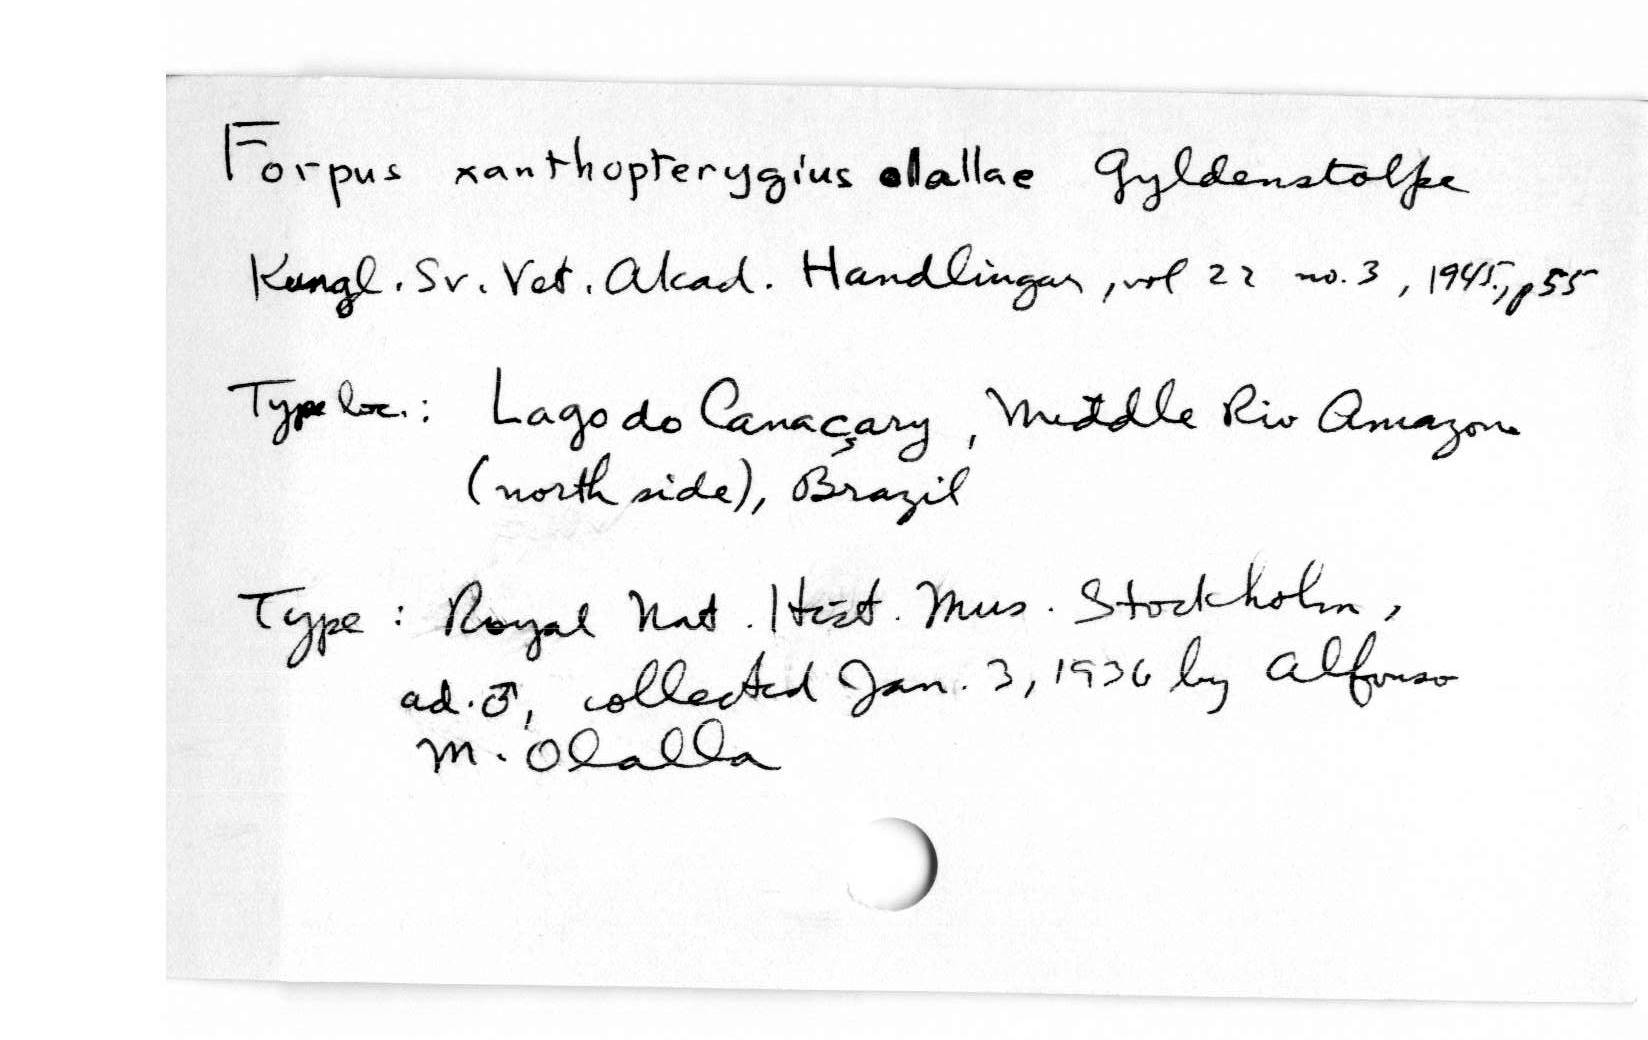 Forpus xanthopterygius olallae Gyldenstolpe
Kungl. Sv. Vet. Akad. Handlingar, vol 22 no. 3, 1945, p55
Type loc.: Lago do Canaçary, Middle Rio Amazon
(north side), Brazil
Type: Royal Nat. Hist. Mus. Stockholm,
ad. ♂, collected Jan. 3, 1936 by Alfonso
M. Olalla